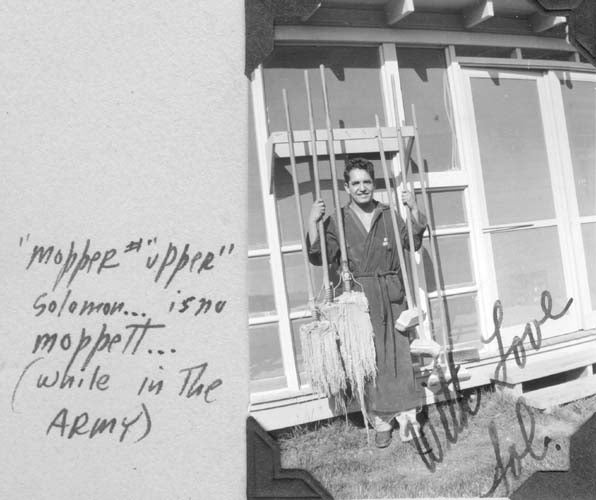 "mopper # "upper"
Solomon... is no
moppett...
(while in The
ARMY)
With Love
Sol.